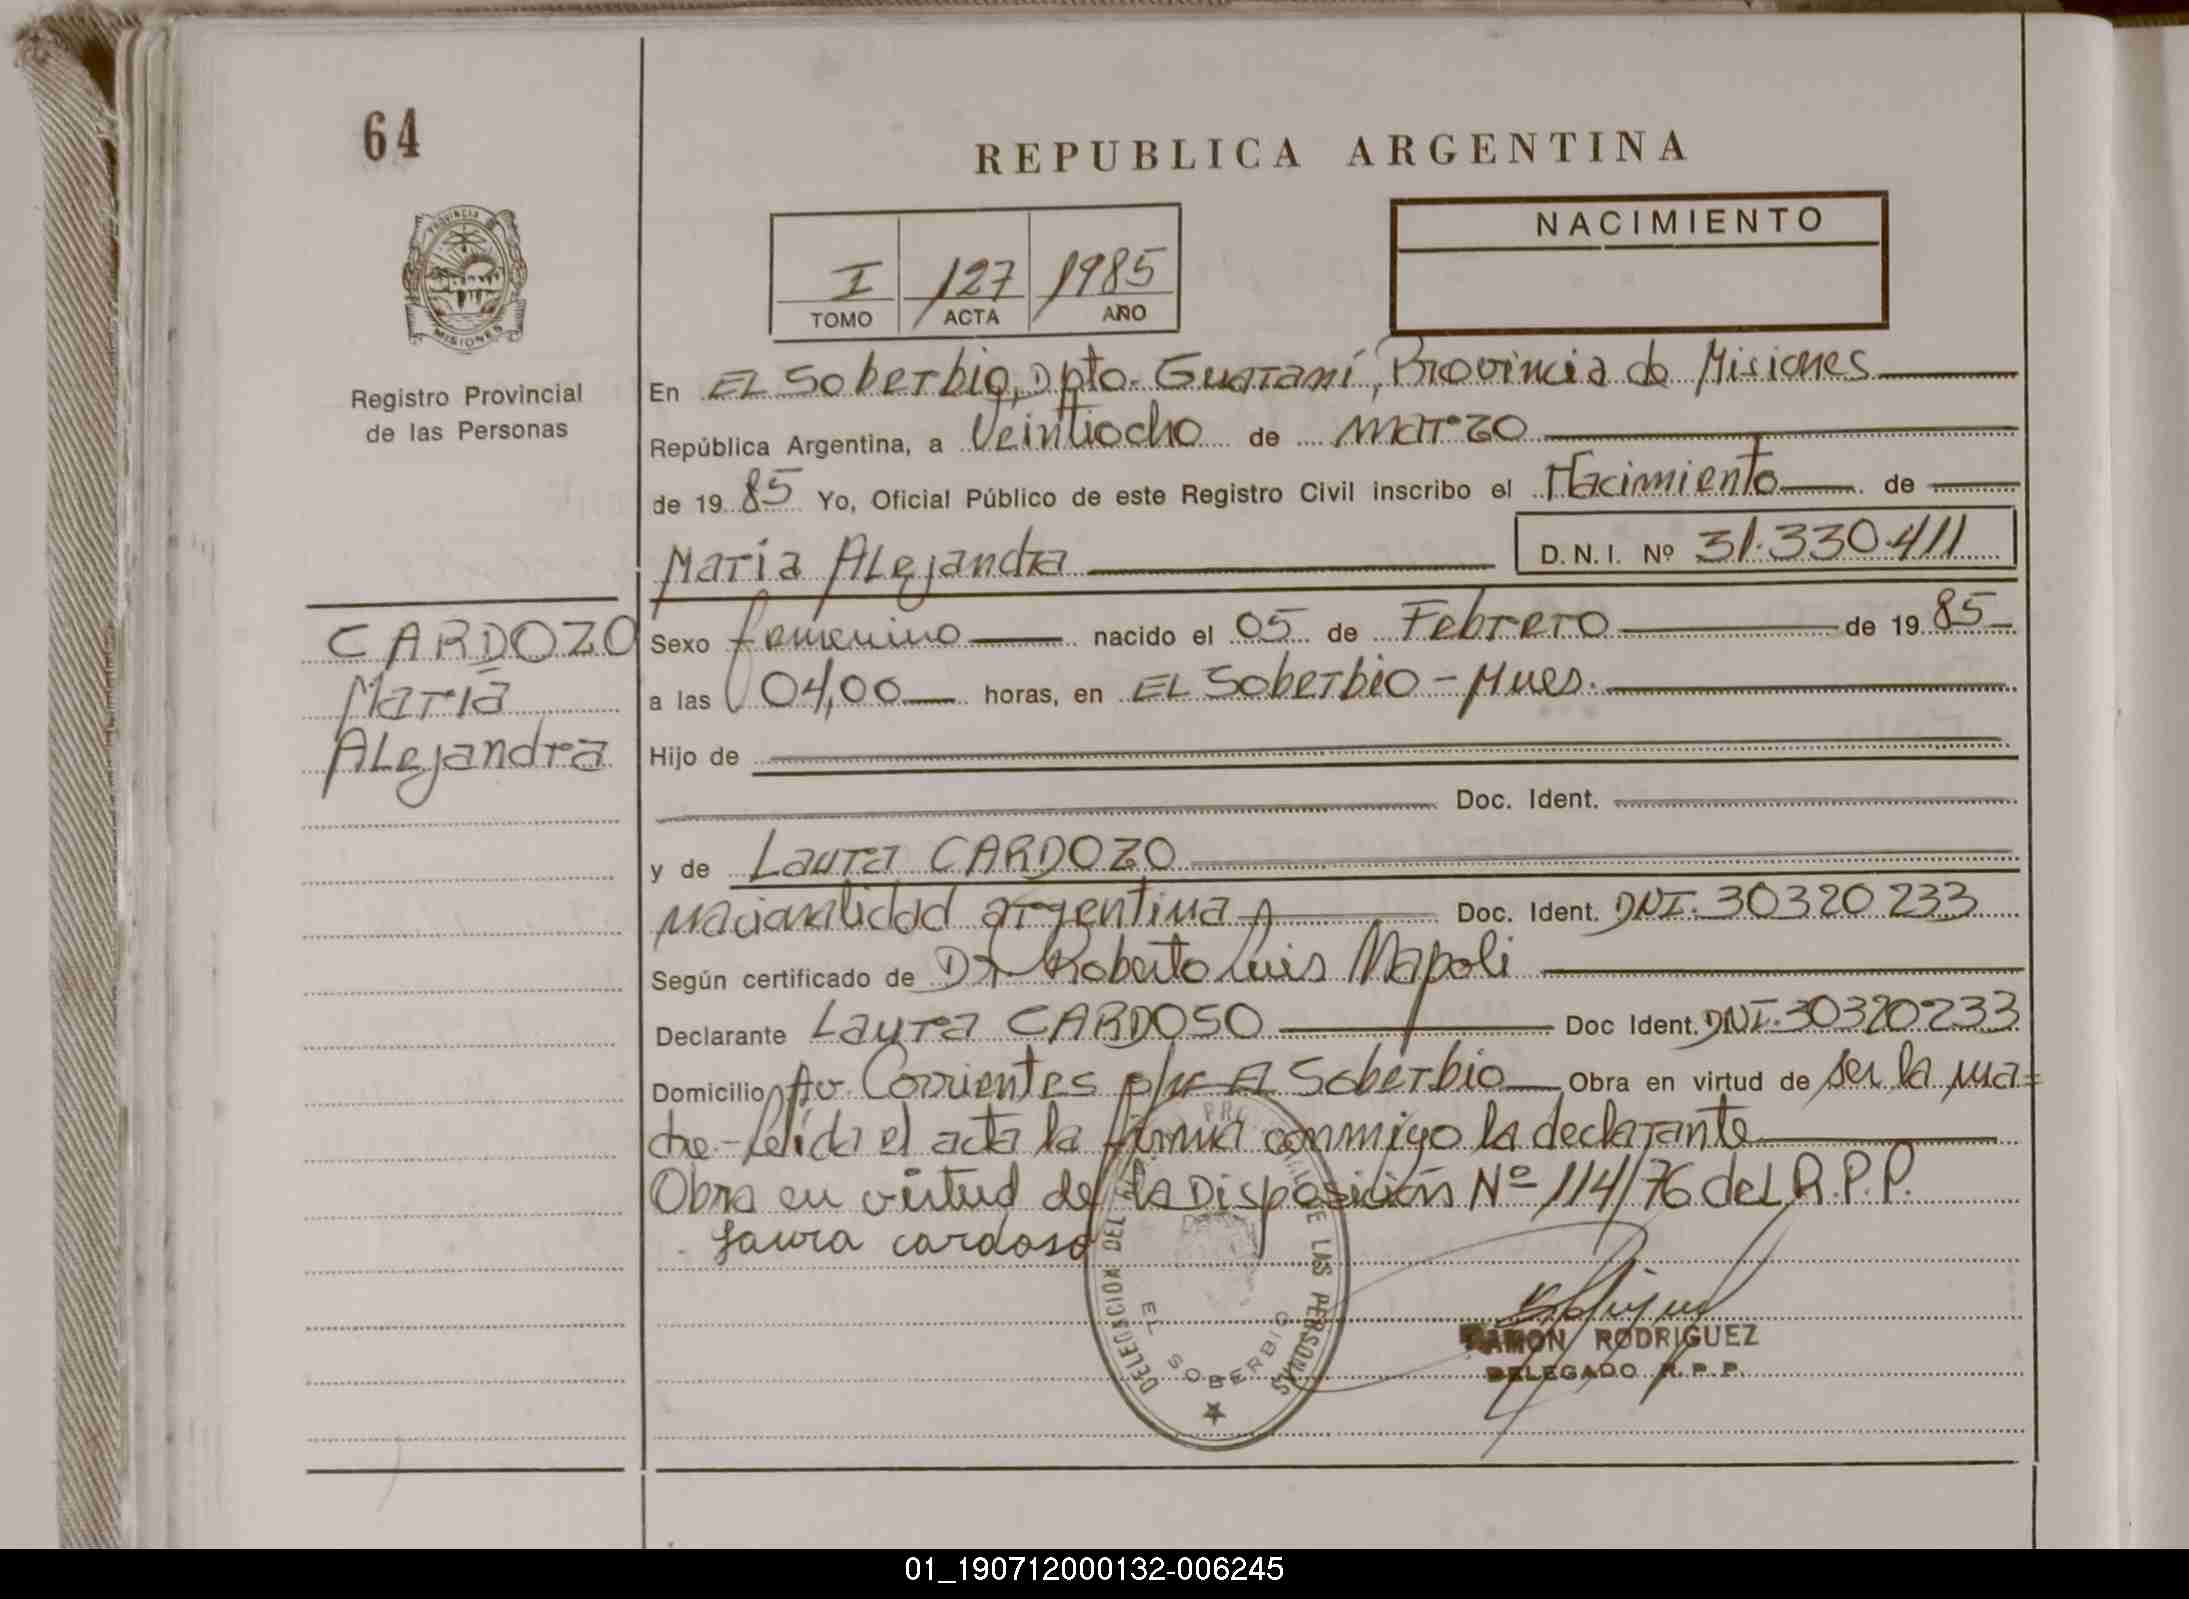 64
REPUBLICA ARGENTINA
PROVINCIA DE
MISIONES
Registro Provincial
de las Personas
I 127 1985
TOMO ACTA AÑO
NACIMIENTO
En EL Soberbio, Dpto. Guaraní, Provincia de Misiones
República Argentina, a Veintiocho de marzo
de 1985 Yo, Oficial Público de este Registro Civil inscribo el Nacimiento de
María ALejandra D.N.I. Nº 31.330.411
CARDOZO
María
ALejandra
Sexo femenino nacido el 05 de Febrero de 1985
a las 04,00 horas, en EL Soberbio - Mnes.
Hijo de
Doc. Ident.
y de Laura CARDOZO
nacionalidad argentina Doc. Ident. DNI. 30320233
Según certificado de Dr Roberto Luis Napoli
Declarante Laura CARDOSO Doc Ident. DNI. 30320233
Domicilio Av. Corrientes s/n EL Soberbio Obra en virtud de ser la ma=
dre - Leída el acta la firma conmigo la declarante
Obra en virtud de la Disposición Nº 114/76 deL R.P.P.
Laura cardoso
DELEGACION DEL LAS PERSONAS
EL SOBERBIO
RAMON RODRIGUEZ
DELEGADO R.P.P.
01_190712000132-006245